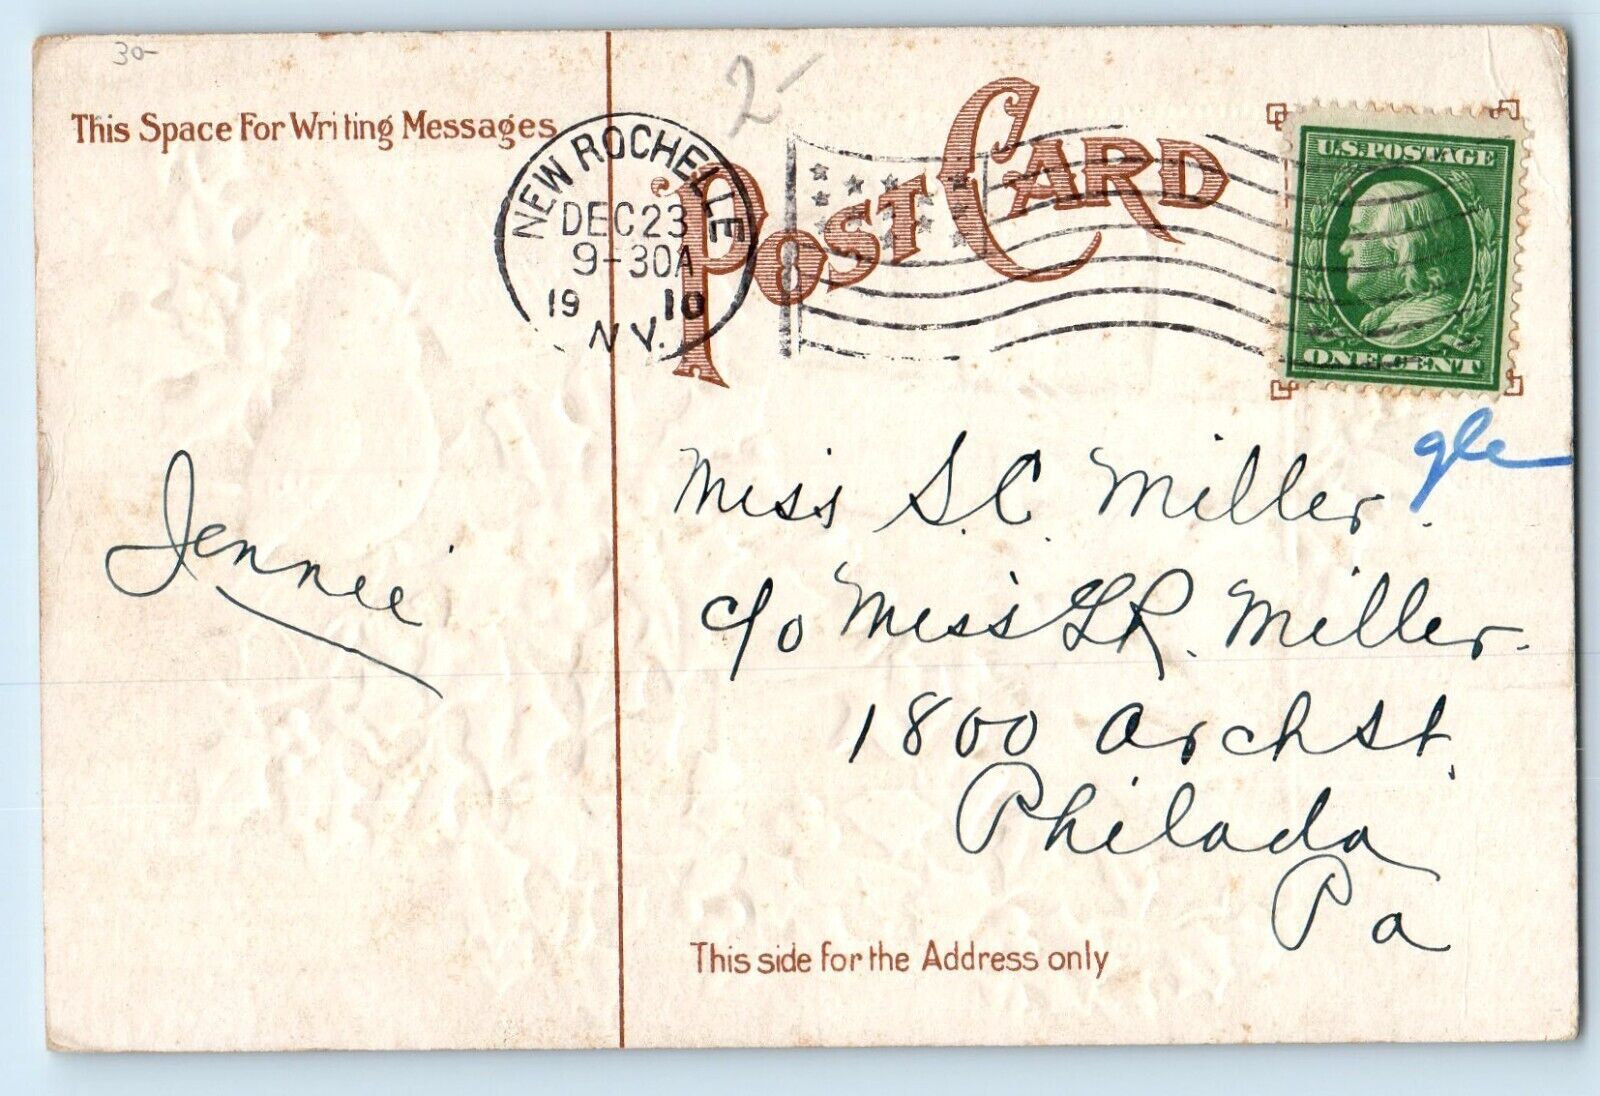 30-
2-
This Space For Writing Messages
POST CARD
NEW ROCHELLE
DEC 23
9-30A
1910
N.Y.
U.S. POSTAGE
ONE CENT
Jennie
Miss S.C. Miller.
c/o Miss L.R. Miller.
1800 Arch st.
Philada
Pa
This side for the Address only